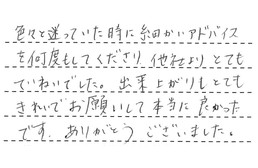 色々と迷っていた時に細かいアドバイス
を何度もしてくださり他社よりとても
ていねいでした。出来上がりもとても
きれいでお願いして本当に良かった
です。ありがとうございました。